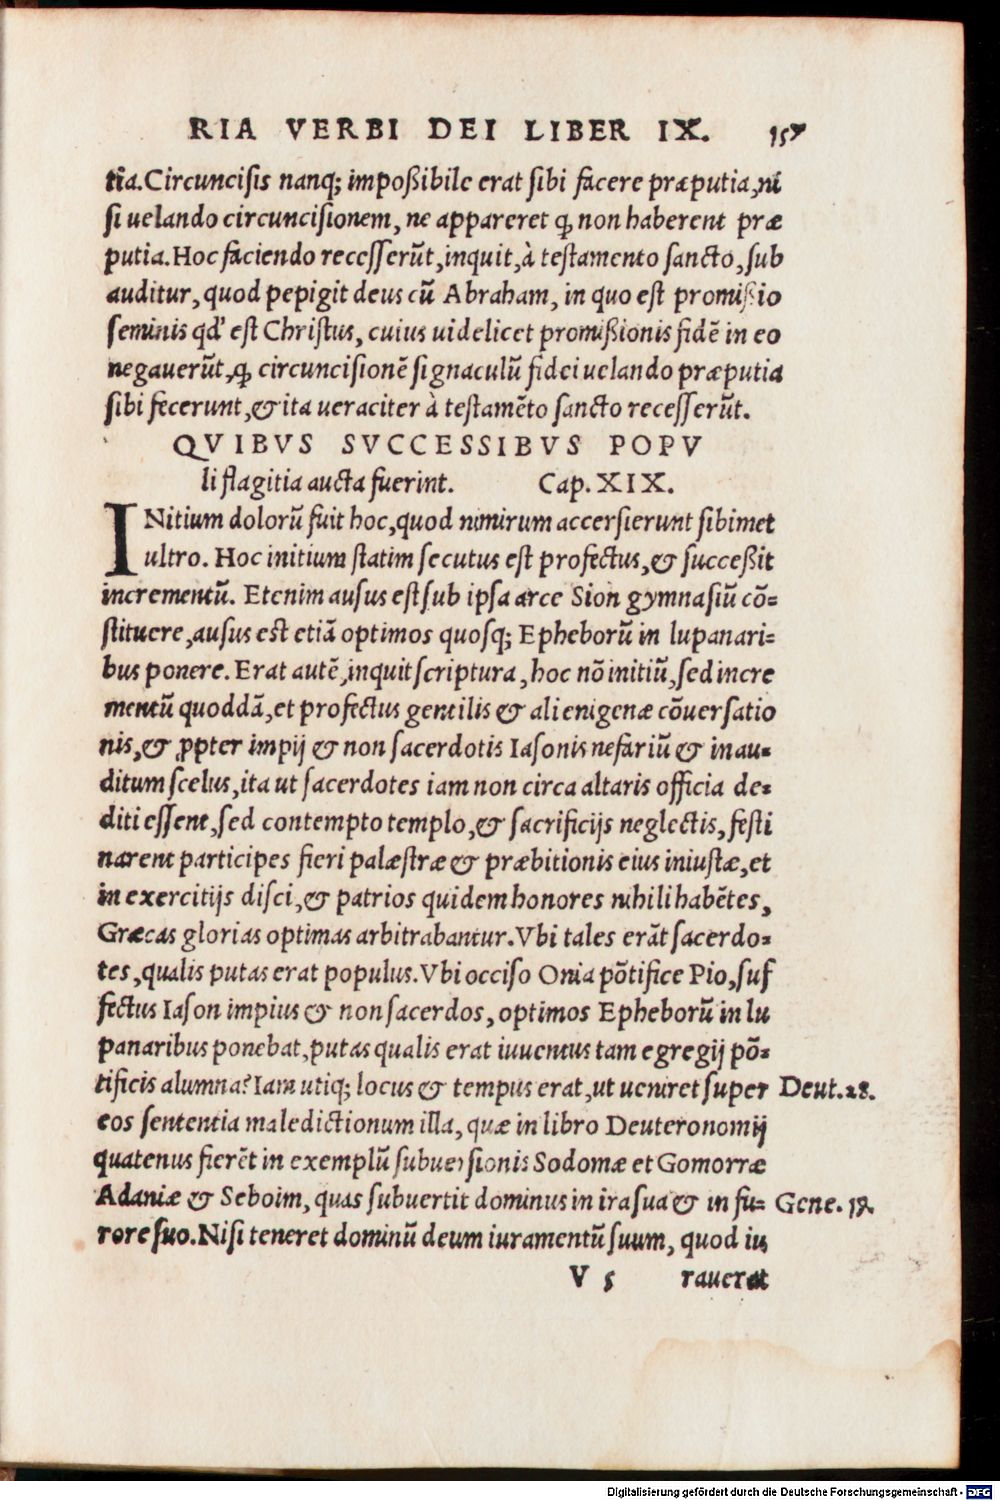 RIA VERBI DEI LIBER IX. 157
tia. Circuncisis nanq; impoßibile erat sibi facere præputia, ni
si uelando circuncisionem, ne appareret ꝙ non haberent præ
putia. Hoc faciendo recesserũt, inquit, à testamento sancto, sub
auditur, quod pepigit deus cũ Abraham, in quo est promißio
seminis qd' est Christus, cuius uidelicet promißionis fidẽ in eo
negauerũt, ꝙ circuncisionẽ signaculũ fidei uelando præputia
sibi fecerunt, & ita ueraciter à testamẽto sancto recesserũt.
QVIBVS SVCCESSIBVS POPV
li flagitia aucta fuerint. Cap. XIX.
INitium dolorũ fuit hoc, quod nimirum accersierunt sibimet
ultro. Hoc initium statim secutus est profectus, & succeßit
incrementũ. Etenim ausus est sub ipsa arce Sion gymnasiũ cõ=
stituere, ausus est etiã optimos quosq; Epheborũ in lupanari=
bus ponere. Erat autẽ, inquit scriptura, hoc nõ initiũ, sed incre
mentũ quoddã, et profectus gentilis & alienigenæ cõuersatio
nis, & ꝓpter impij & non sacerdotis Iasonis nefariũ & inau=
ditum scelus, ita ut sacerdotes iam non circa altaris officia de=
diti essent, sed contempto templo, & sacrificijs neglectis, festi
narent participes fieri palæstræ & præbitionis eius iniustæ, et
in exercitijs disci, & patrios quidem honores nihili habẽtes,
Græcas glorias optimas arbitrabantur. Vbi tales erãt sacerdo=
tes, qualis putas erat populus. Vbi occiso Onia põtifice Pio, suf
fectus Iason impius & non sacerdos, optimos Epheborũ in lu
panaribus ponebat, putas qualis erat iuuentus tam egregij põ=
tificis alumna? Iam utiq; locus & tempus erat, ut ueniret super Deut. 28.
eos sententia maledictionum illa, quæ in libro Deuteronomij
quatenus fierẽt in exemplũ subuersionis Sodomæ et Gomorræ
Adaniæ & Seboim, quas subuertit dominus in ira sua & in fu= Gene. 19.
rore suo. Nisi teneret dominũ deum iuramentũ suum, quod iu
V 5 rauerat
Digitalisierung gefördert durch die Deutsche Forschungsgemeinschaft - DFG